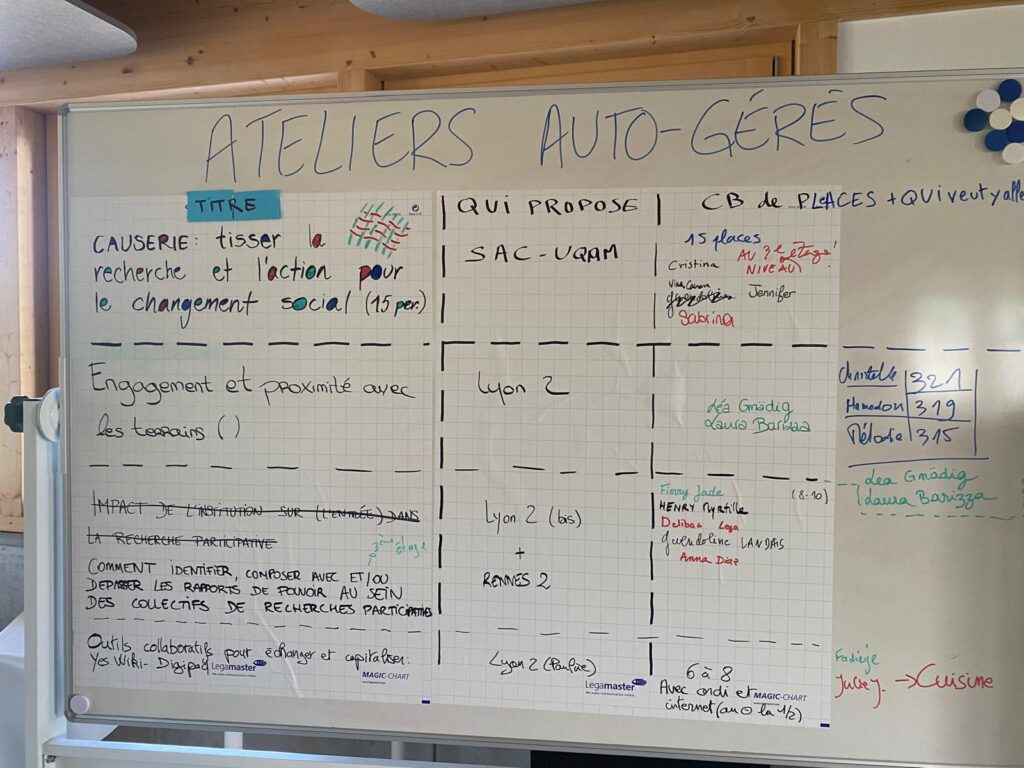 ATELIERS AUTO-GÉRÉS
TITRE
QUI PROPOSE
CB de PLACES + QUI veut y alle
CAUSERIE: tisser la
recherche et l'action pour
le changement social (15 per.)
SAC-UQAM
15 places
AU 3e étage!
NIVEAU
Cristina
Jennifer
Sabrina
Engagement et proximité avec
les terrains ( )
Lyon 2
Léa Gnädig
Laura Barizza
Christelle 321
Mamadou 319
Mélodie 315
Léa Gnädig
Laura Barizza
IMPACT DE L'INSTITUTION SUR (L'ENTRÉE) DANS
LA RECHERCHE PARTICIPATIVE
3ème étage
COMMENT IDENTIFIER, COMPOSER AVEC ET/OU
DEPASSER LES RAPPORTS DE POUVOIR AU SEIN
DES COLLECTIFS DE RECHERCHES PARTICIPATIVES
Lyon 2 (bis)
+
RENNES 2
Jade (8-10)
HENRY Myrtille
Delibas
Gwendoline LANDAIS
Anna Diaz
Outils collaboratifs pour échanger et capitaliser:
Yes Wiki - Digipad
Legamaster
MAGIC-CHART
Lyon 2 (Pauline)
Legamaster
6 à 8
Avec ordi et
internet (au o la 1/2)
MAGIC-CHART
Julie J. → Cuisine